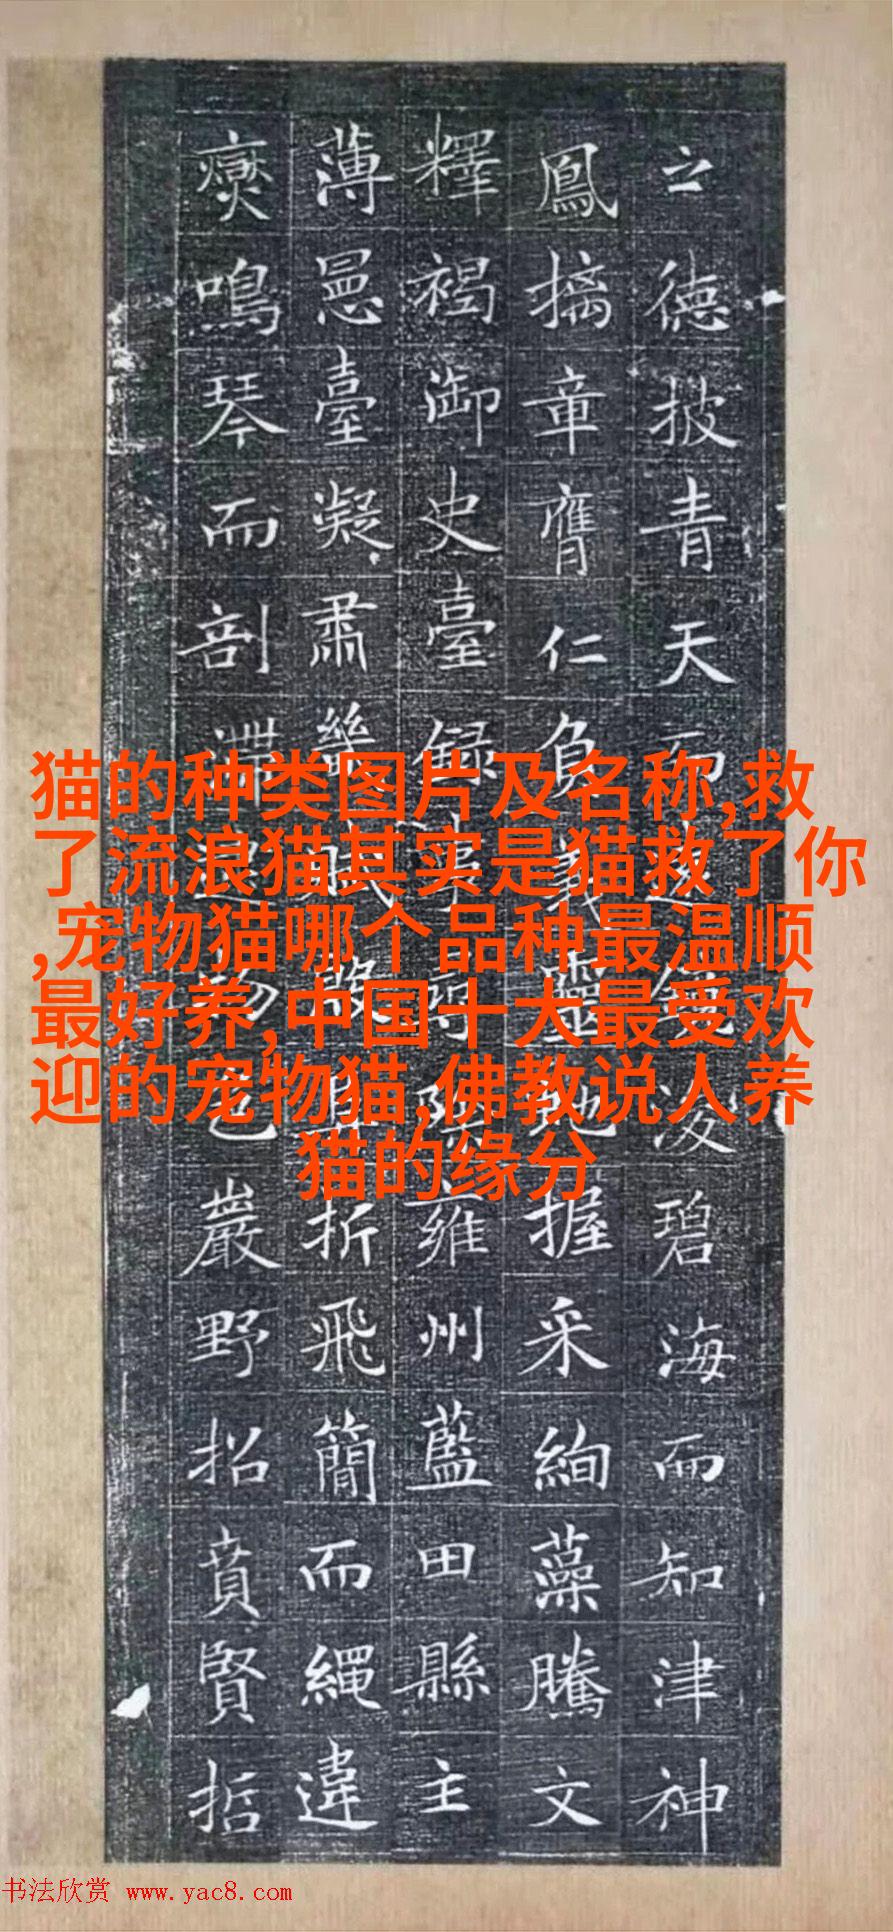 之德披青天而凌碧海而知津神
鳳摛章膺仁負義靈握采絢藻騰文
釋褐御史臺録事尋除雍州藍田縣主
薄臺凝肅職折飛簡而繩違
鳴琴而剖滯巖野招賁賢哲
猫的种类图片及名称,救
了流浪猫其实是猫救了你
,宠物猫哪个品种最温顺
最好养,中国十大最受欢
迎的宠物猫,佛教说人养
猫的缘分
书法欣赏 www.yac8.com